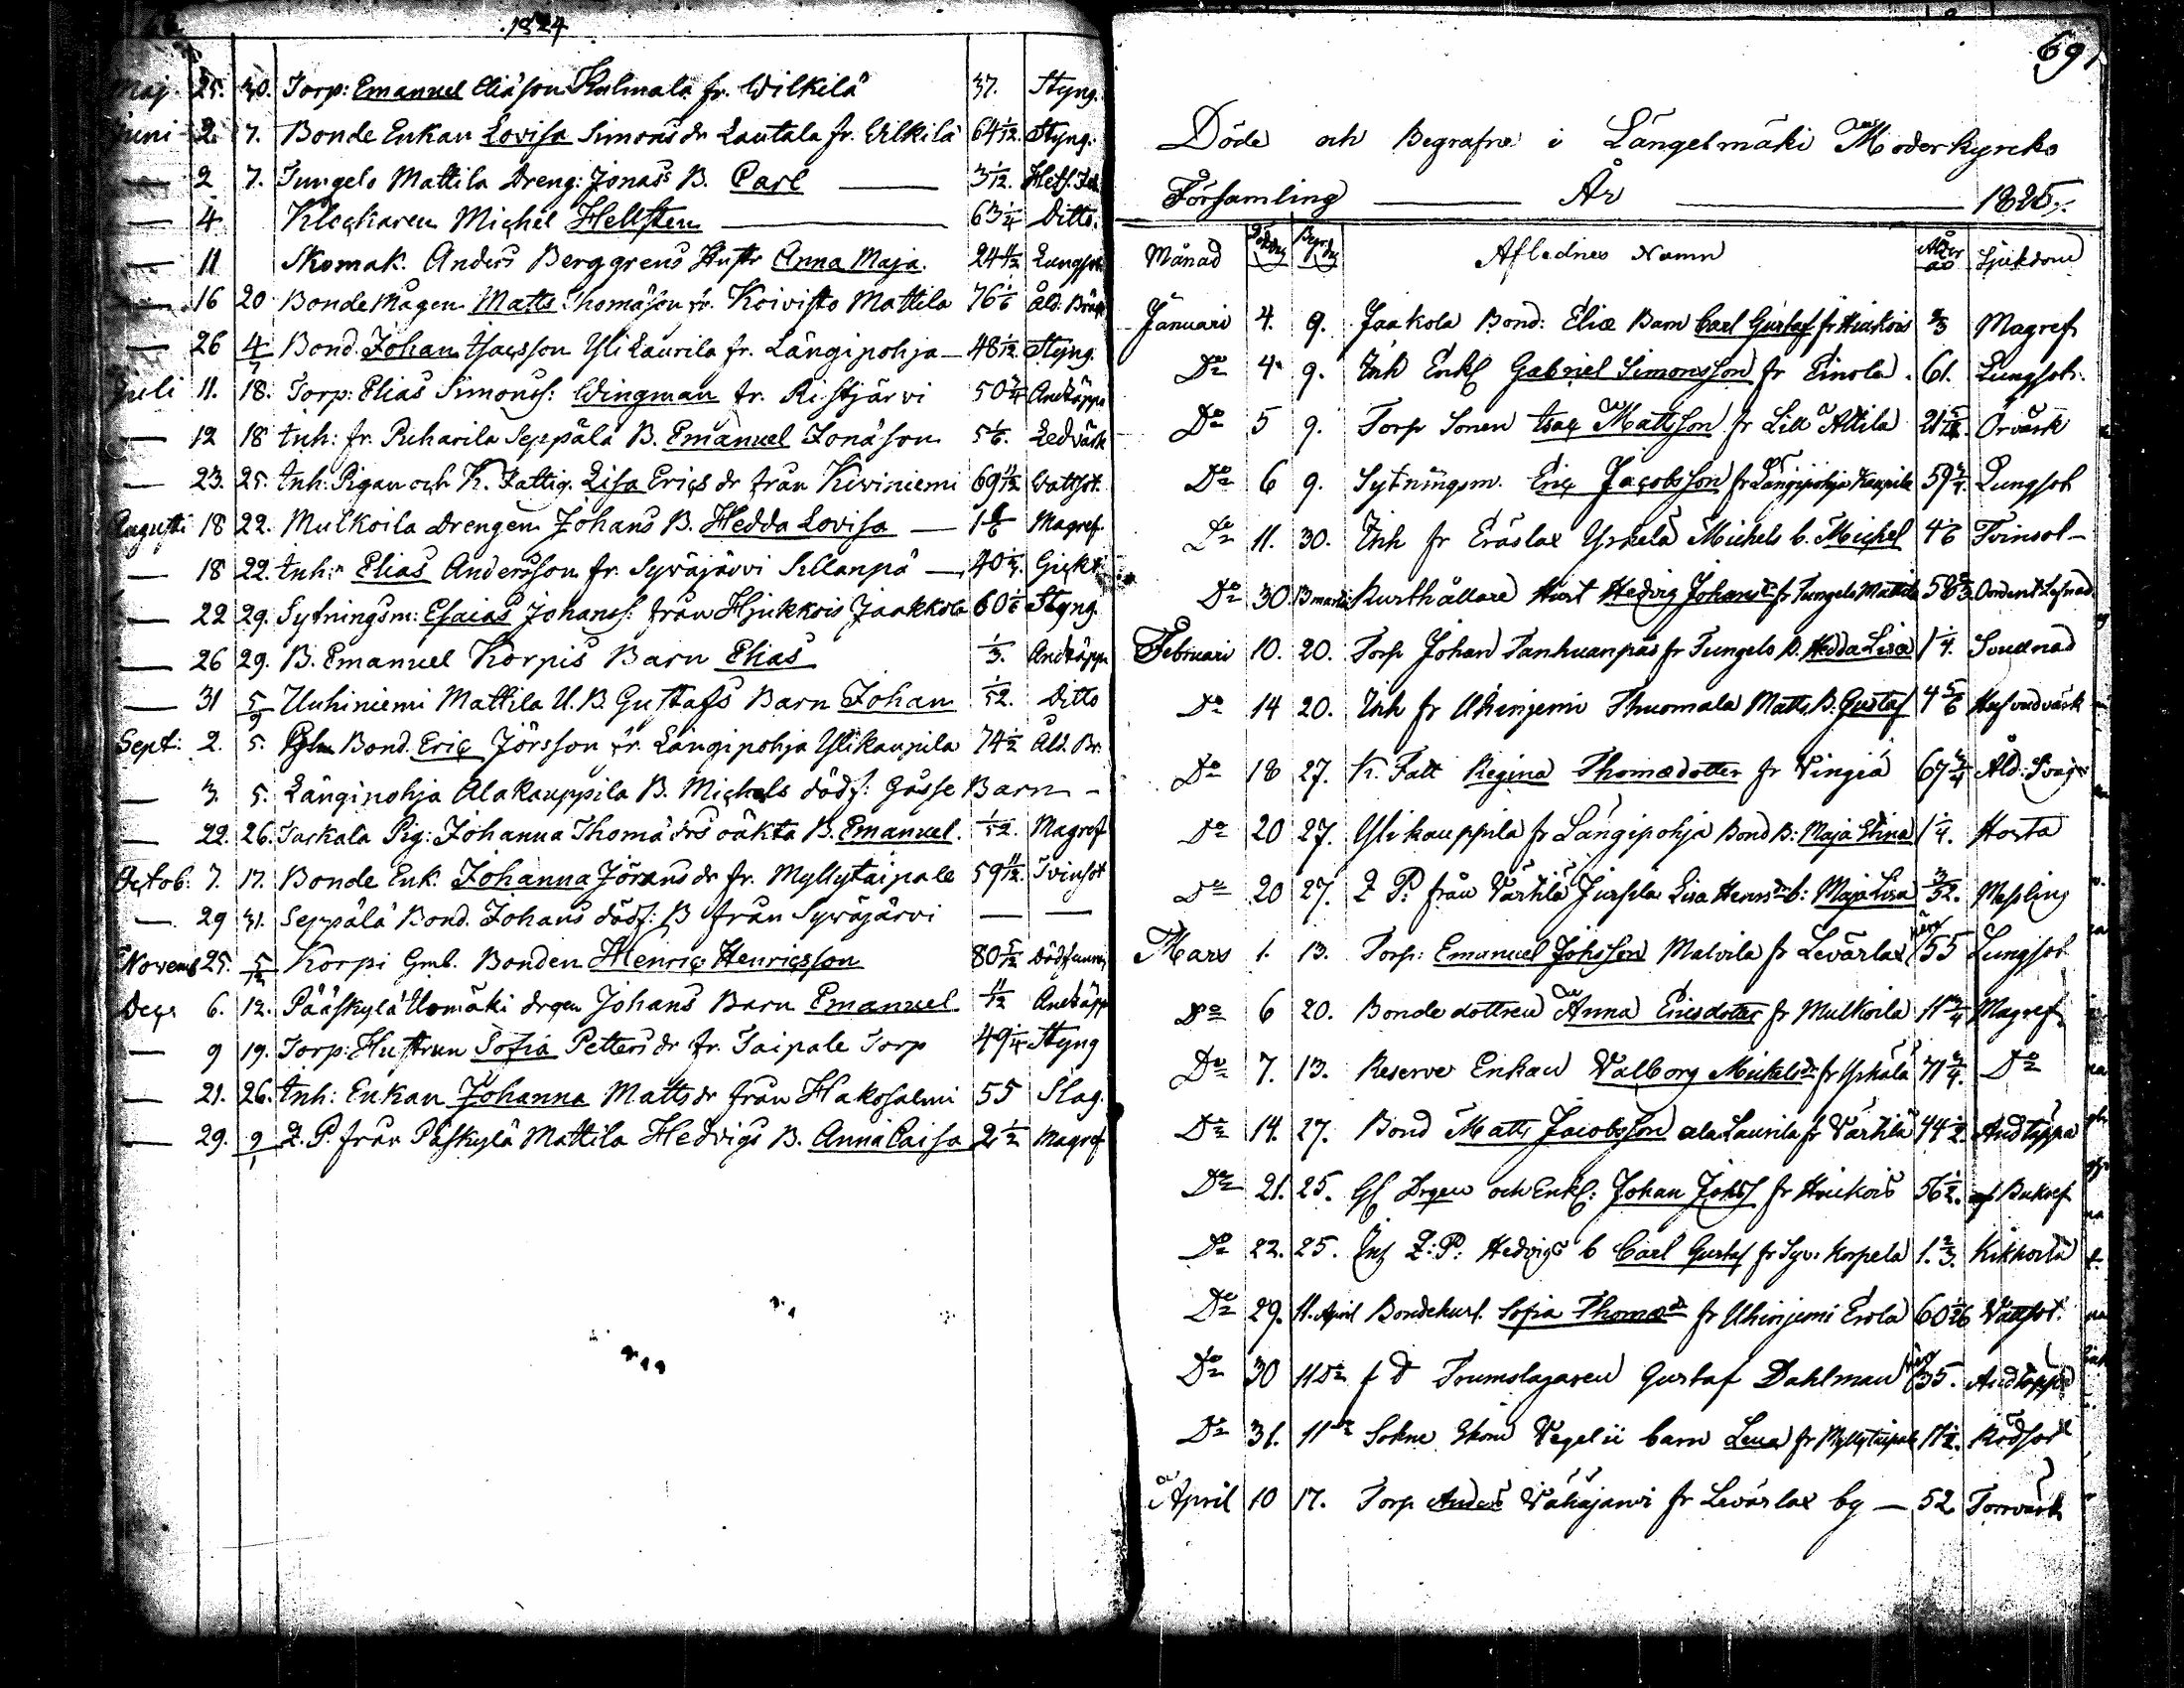 1824
Maj. 25. 30. Torp: Emanuel Eliäson Kulmala fr. Wilkilä 37. Styng.
Juni 2 7. Bonde Enkan Lovisa Simons dr Lautala fr. Wilkilä 64 1/12. Styng.
— 2 7. Tungelo Mattila Dreng: Jonas's B. Carl — 3/12. Hets.
— 4 Klockaren Michel Hellsten — 63 1/4 Ditto.
— 11 Skomak. Anders Berggrens Hustr Anna Maja. Lungsot
— 16 20 Bonde Mågen Matts Thomäson fr. Koivisto Mattila 76 1/6 Åld. Bräck
— 26 4/7 Bond. Johan Isacsson Yli Laurila fr. Längipohja — 48 1/12. Styng.
Juli 11. 18. Torp: Elias Simonss: Wingman fr. Ristjärvi 50 Andtäppa
— 12 18 Inh: fr. Puharila Seppälä B. Emanuel Jonäson 5 1/6. Ledvärk
— 23. 25. Inh: Pigan och K. Fattig. Lisa Erics dr från Kiviniemi 69 Wattsot.
Augusti 18 22. Mulkoila Drengen Johans B. Hedda Lovisa — 1 Magref.
— 18 22. Inh: Elias Andersson fr. Syväjärvi Sillanpä — 40 Gickt
— 22 29. Sytningsm: Esaias Johanss: från Hjukkois Jaakkola 60 1/6 Styng.
— 26 29. B. Emanuel Korpis Barn Elias 1/3. Andtäppa
— 31 5/9 Uuhiniemi Mattila U. B. Gustafs Barn Johan 1/52. Ditto
Sept: 2. 5. Bond. Eric Jörsson fr. Längipohja Ylikaupila 74 1/2 Åld. Br.
— 3. 5. Längipohja Alakauppila B. Michels dödf: Gosse Barn —
— 22. 26. Jaskala Pig: Johanna Thomä drs oäkta B. Emanuel. 1/52. Magref
Octob: 7. 17. Bonde Enk. Johanna Jörans dr fr. Myllytaipale 59 11/12. Tvinsot
— 29 31. Seppälä Bond. Johans dödf: B från Syväjärvi — —
Novemb 25. 5/12 Korpi Gmb. Bonden Henric Henricsson 80 5/12
Decr 6. 12. Pääskylä Uomäki drgen Johans Barn Emanuel 11/12 Andtäpp
— 9 19. Torp: Hustrun Sofia Petters dr fr. Taipale Torp 49 1/4 Styng
— 21. 26. Inh: Enkan Johanna Matts dr från Hakosalmi 55 Slag.
— 29. 2/1 L. P. från Päskylä Mattila Hedvigs B. Anna Caisa 2 1/2 Magref
69,
Döde och Begrafne i Längelmäki Moderkyrcko
Församling — År — 1825.
Månad Döddg Begr.dg Aflednes Namn Ålder år Sjukdom
Januari 4. 9. Jaakola Bond: Eliæ Barn Carl Gustaf fr Hiukois 2/3 Magref
Do 4 9. Inh Enkl Gabriel Simonsson fr Einola. 61. Lungsot.
Do 5 9. Torp Sonen Isac Mattsson fr Lill Attila 21 Örvärk
Do 6 9. Sytningsm. Eric Jacobsson fr Längipohja Kaupila 59 Lungsot
Do 11. 30. Inh fr Eräslax Yrkelä Michels b. Michel 4 1/6 Tvinsot —
Do 30 13 martii Kursthållare Hust Hedvig Johansdr fr Tungelo Mattila 58 2/3 Oordent Lefnad
Februari 10. 20. Torp Johan Tanhuanpäs fr Tungelo B. Hedda Lisa 1 1/4. Soudnad
Do 14 20. Inh fr Uhinjemi Thuomala Matts B. Gustaf 4 5/6 Hufvudvärk
Do 18 27. K. Fatt Regina Thomædotter fr Vingiä 67 3/4 Åld: Svagh
Do 20 27. Ylikauppila fr Längipohja Bond B: Maja Stina 1 1/4. Hosta
Do 20 27. L P: från Värhilä Jussila Lisa Henrsdr b: Maja Lisa 3/52. Messling
Mars 1. 13. Torp: Emanuel Johsson Matvila fr Levärlax 55 Lungsot
Do 6 20. Bondedottren Anna Ericsdotter fr Mulkoila 11 3/4 Magref
Do 7. 13. Reserve Enkan Valborg Mickelsdr fr Yskälä 71 Do
Do 14. 27. Bond Matts Jacobsson alaLaurila fr Värhilä 44 1/2. Andtäppa
Do 21. 25. Gl Drgen och Enkl: Johan Johss fr Hiukois 56 1/2. af Bukref
Do 22. 25. Inh L: P: Hedvigs b Carl Gustaf fr Syv: Korpela 1. 2/3. Kikhosta
Do 29. 11. April Bondehust. Sofia Thomædr fr Uhinjemi Erola 60 1/26 Vattsot.
Do 30 11 Do f d Trumslagaren Gustaf Dahlman 35. Andtäppa
Do 31. 11 do Sokne Skom Vegelii barn Lena fr Myllytaipale 1 1/2. Rödsot
April 10 17. Torp Anders Vähäjarvi fr Levärlax by — 52 Torrvärk